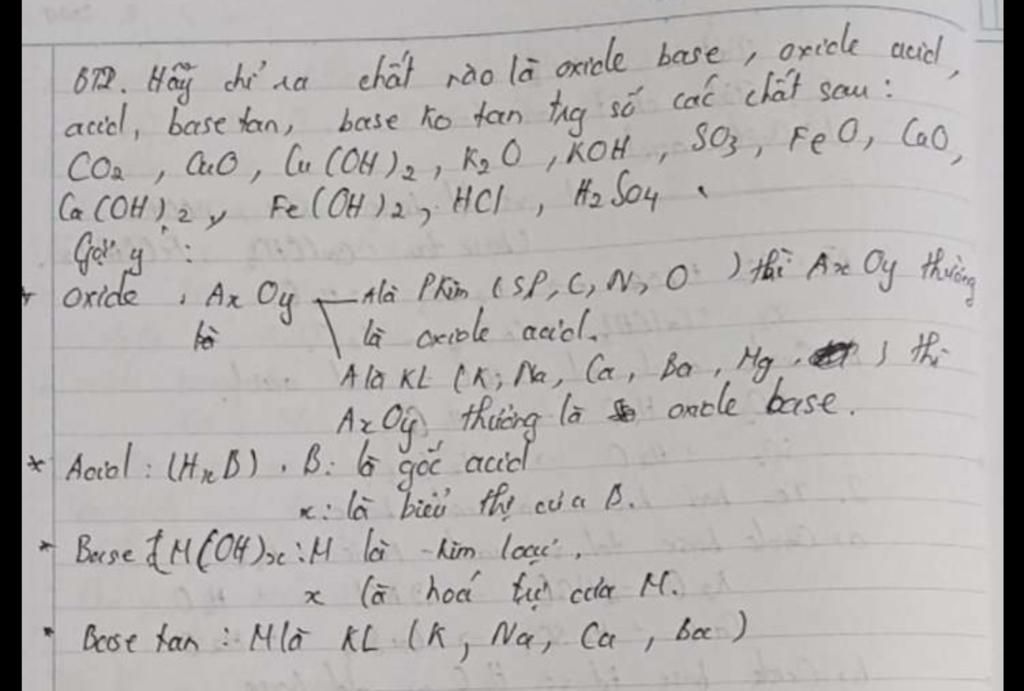 BT2. Hãy chỉ ra chất nào là oxide base, oxide acid,
acid, base tan, base ko tan trg số các chất sau:
CO2, CuO, Cu(OH)2, K2O, KOH, SO3, FeO, CaO,
Ca(OH)2, Fe(OH)2, HCl, H2SO4.
Gợi ý:
+ oxide, AxOy A là Phkim (S, P, C, N, O ) thì AxOy thường
là oxide acid.
A là KL (K, Na, Ca, Ba, Mg, ) thì
AxOy thường là oxide base.
* Acid: (HxB). B: là gốc acid
x: là biểu thị của B.
* Base {M(OH)x: M là kim loại.
x là hoá trị của M.
* Base tan: M là KL (K, Na, Ca, Ba)